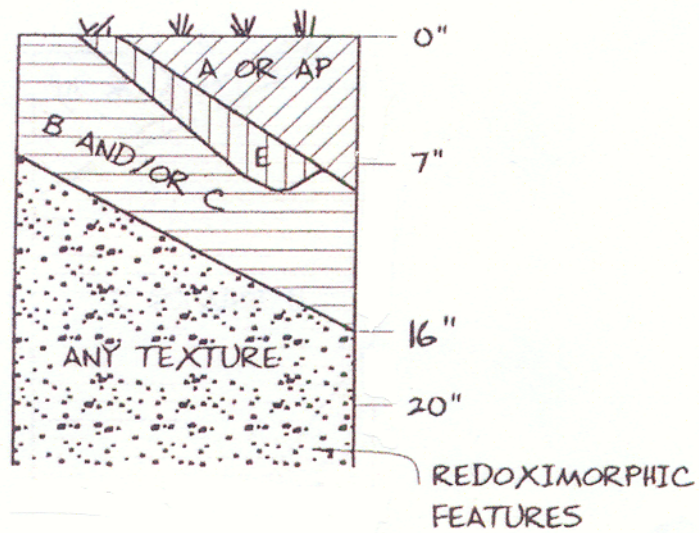 0"
A OR AP
B AND/OR C
E
7"
16"
ANY TEXTURE
20"
REDOXIMORPHIC
FEATURES